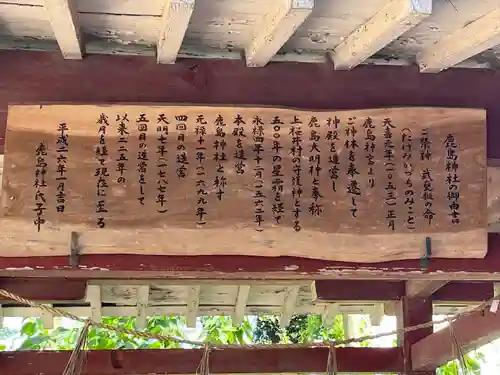 鹿島神社の御由言
ご祭神 武見槌の命
(たけみかづちのみこと)
天喜元年(一〇五三)正月
鹿島神宮より
ご神体を奉遷して
神殿を造営し
鹿島大明神と奉称
上桜井村の守護神とする
五〇〇年の星霜を経て
永禄四年十一月(一五六二年)
本殿を造営
鹿島神社と称す
元禄十一年(一六九九年)
四回目の造営
天明七年(一七八七年)
五回目の造営をして
以来二二五年の
歳月を経て現在に至る
平成二六年一月吉日
鹿島神社氏子中